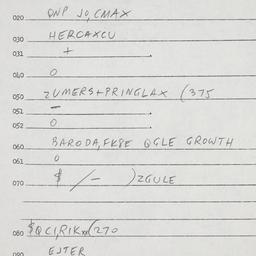 020 QNP JO,CMAX
030 HERCAXCU
031 +
040 O
050 ZUMERS+PRINGLAX (375
051 -
052 O
060 BARODA,FK8E QGLE GROWTH
061 O
070 $ /- )ZGULE
080 $QCI,RIK (270
090 EJTER